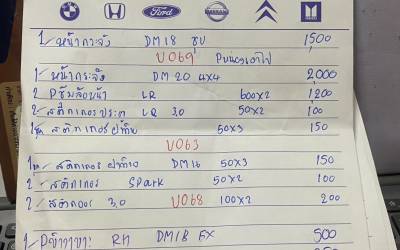 Ford NISSAN
1/ หน้ากระจัง DM18 ชบ 1,500
V069
1/ หน้ากระจัง DM20 4x4 2,000
2/ P ซุ้มล้อหน้า LR 600x2 1,200
2/ สติกเกอร์ประตู LR 3.0 50x2 100
สติกเกอร์ฝาท้าย 50x3 150
V063
สติกเกอร์ฝาท้าย DM16 50x3 150
2/ สติกเกอร์ SPARK 50x2 100
2/ สติกเกอร์ 3.0 V068 100x2 200
1/ RH DM18 FX 500